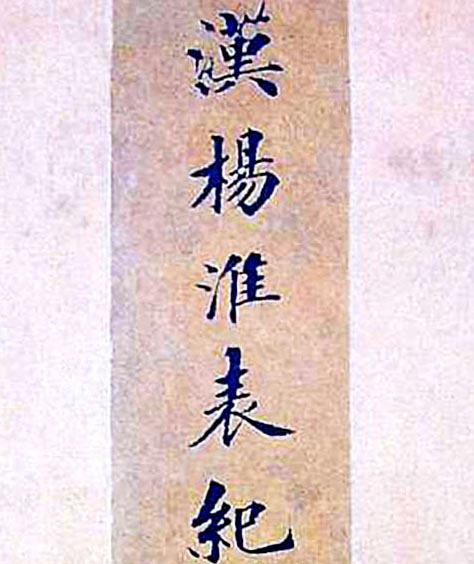 漢楊淮表紀